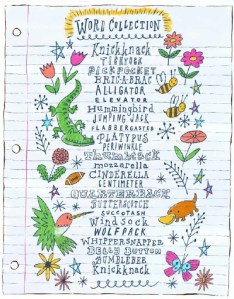 WORD COLLECTION
Knickknack
TICKTOCK
PICKPOCKET
BRIC-A-BRAC
ALLIGATOR
ELEVATOR
Hummingbird
JUMPING JACK
FLABBERGASTED
PLATYPUS
PERIWINKLE
Thumbtack
mozzarella
CINDERELLA
CENTIMETER
QUARTERBACK
BUTTERSCOTCH
SUCCOTASH
Windsock
WOLFPACK
WHIPPERSNAPPER
BELLY BUTTON
BUMBLEBEE
Knickknack